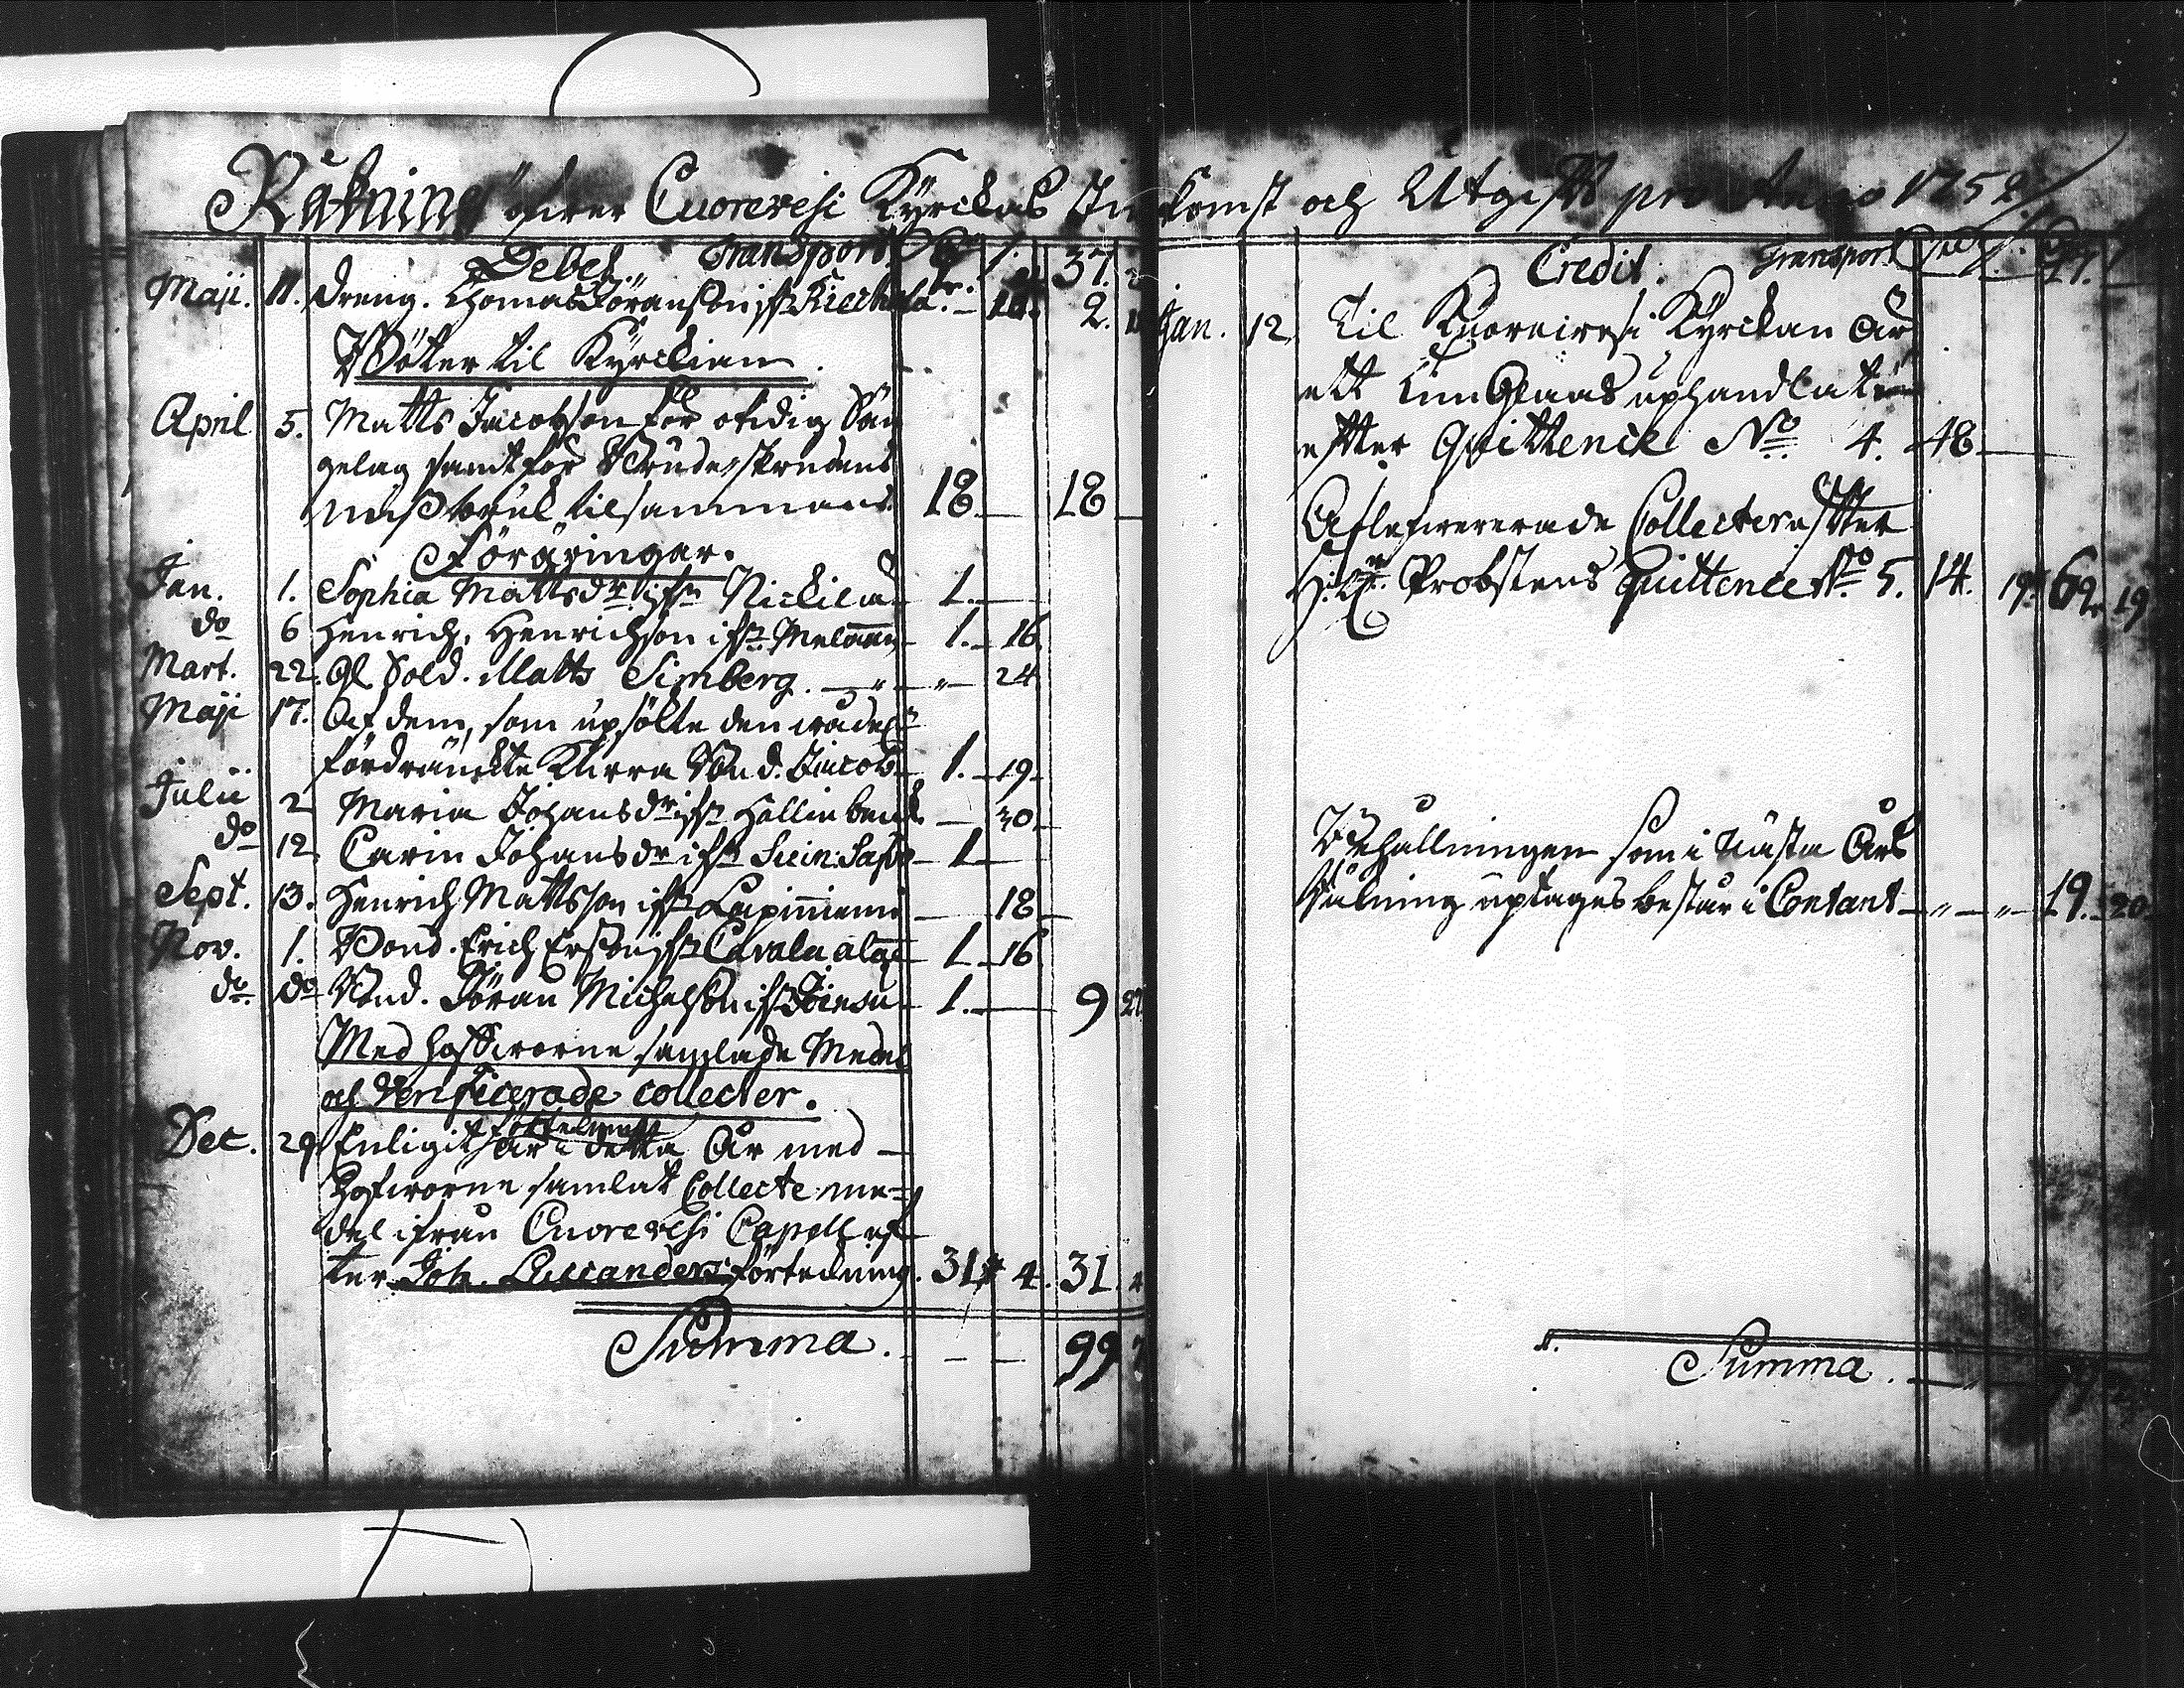 Räkning öfver Cuorevesi Kyrckas Inkomst och Utgift pro Anno 1752
Debet. Transport 37.
Maji. 11. Dreng. Thomas Jöransson ifr. 2.
Böter til Kyrckian.
April 5. Matts Jacobson för otidig
gelag samt för
missbruk tilsammans 18. — 18 —
Föräringar.
Jan. 1. Sophia Mattsdr. ifrn Nickilä 1. —
do 6 Henrich Henrichson ifrn 1. — 16
Mart. 22. Gl. Sold. Matts Simberg. — " — " — 24
Maji 17. Af dem, som upsökte den
fördränckte Bond. Jacob 1. — 19
Julii 2 Maria Johansdr. ifrn — 30 —
do 12. Carin Johansdr. ifrn 1 —
Sept. 13. Henrich Mattsson ifrn Lapinniemi — 18 —
Nov. 1. Bond. Erich Ersson ifrn 1 — 16
do do Bond. Jöran Michelsson ifrn 1. — 9 27
Med Hofwarne samlade Medel
och Verificerade collecter.
Dec. 29 Enligit är i detta Åhr med
Hofwarne samlat Collecte me=
del ifrån Cuorevesi Capell ef
ter Joh. Lucanders förtekning. 31 4. 31. 4
Summa. — — 99
Credit. Transport
Jan. 12 Til Kuorewesi Kyrckan är
ett uphandlat
efter Quittence No. 4. 48 —
Aflefwererade Collecter efter
H. Hr. Probstens Quittence No. 5. 14. 19. 62. 19
Behållningen som i nästa Åhrs
Räkning uptages består i Contant — " — " — 19. 20.
Summa.